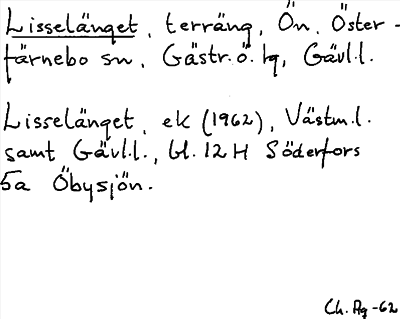 Lisselänget, terräng, Ön, Öster-
färnebo sn, Gästr.ö. tg, Gävl.l.
Lisselänget, ek (1962), Västm.l.
samt Gävl.l., bl. 12 H Söderfors
5a Öbysjön.
Ch. Ag -62